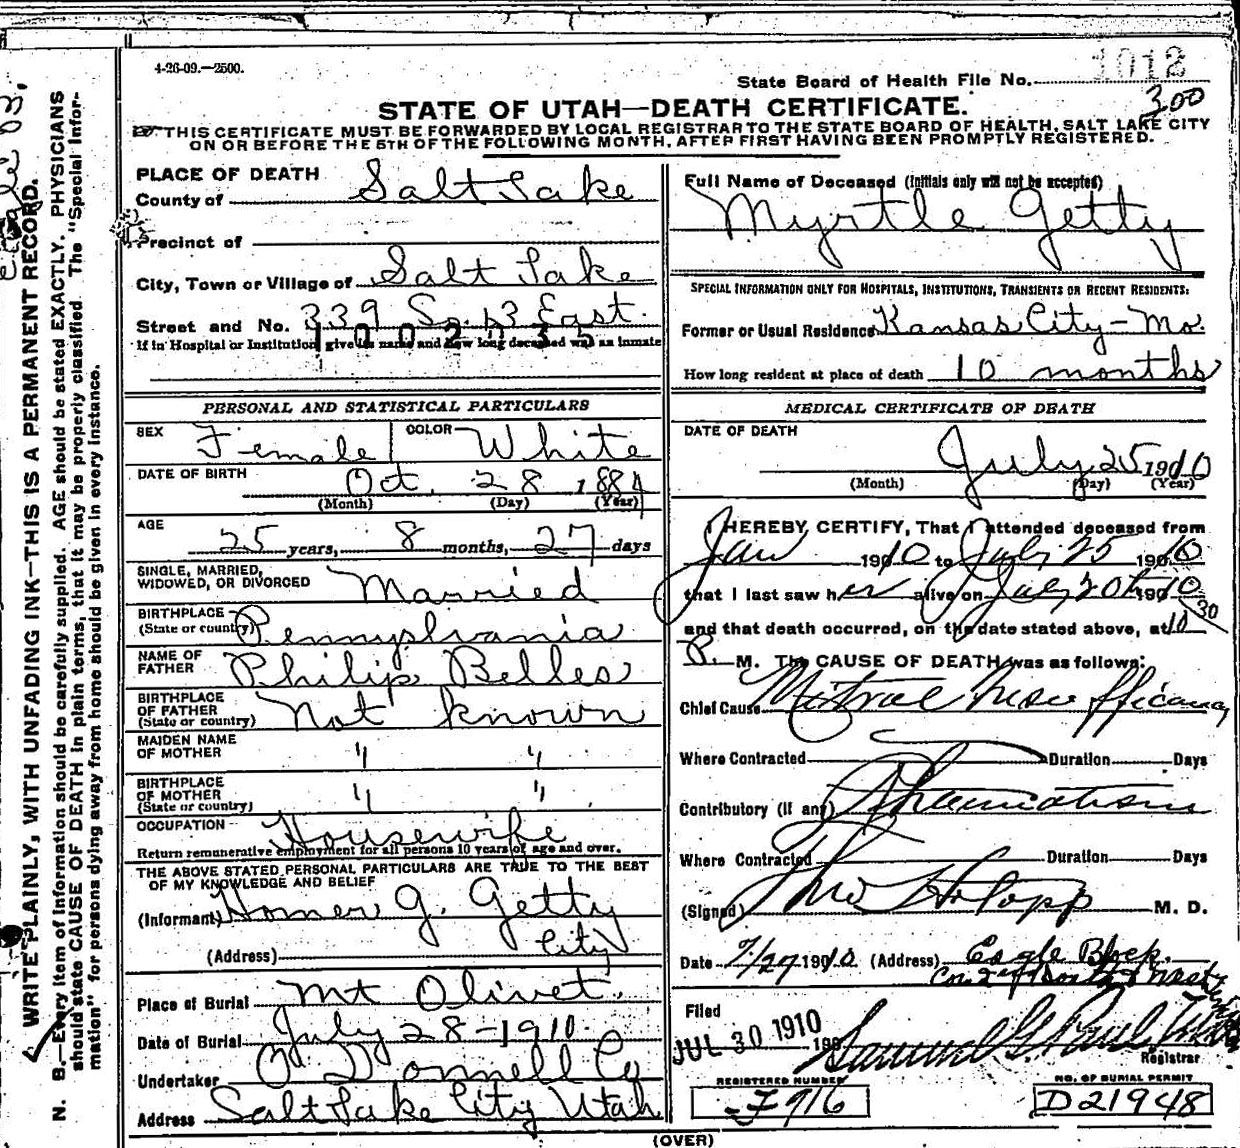 4-26-09.—2500.
State Board of Health File No. 1012
300
STATE OF UTAH—DEATH CERTIFICATE.
THIS CERTIFICATE MUST BE FORWARDED BY LOCAL REGISTRAR TO THE STATE BOARD OF HEALTH, SALT LAKE CITY
ON OR BEFORE THE 5TH OF THE FOLLOWING MONTH, AFTER FIRST HAVING BEEN PROMPTLY REGISTERED.
PLACE OF DEATH
County of Salt Lake
Precinct of
City, Town or Village of Salt Lake
Street and No. 339 So. 3 East.
100235
If in Hospital or Institution, give its name and how long deceased was an inmate
PERSONAL AND STATISTICAL PARTICULARS
SEX Female COLOR White
DATE OF BIRTH Oct. 28 1884
(Month) (Day) (Year)
AGE 25 years, 8 months, 27 days
SINGLE, MARRIED,
WIDOWED, OR DIVORCED Married
BIRTHPLACE
(State or country) Pennyslvania
NAME OF
FATHER Philip Belles
BIRTHPLACE
OF FATHER
(State or country) not known
MAIDEN NAME
OF MOTHER " "
BIRTHPLACE
OF MOTHER
(State or country) " "
OCCUPATION Housewife
Return remunerative employment for all persons 10 years of age and over.
THE ABOVE STATED PERSONAL PARTICULARS ARE TRUE TO THE BEST
OF MY KNOWLEDGE AND BELIEF
(Informant) Homer G. Getty
(Address) City
Place of Burial Mt Olivet.
Date of Burial July 28-1910.
Undertaker O'Donnell Co
Address Salt Lake City Utah
Full Name of Deceased (Initials only will not be accepted)
Myrtle Getty
SPECIAL INFORMATION ONLY FOR HOSPITALS, INSTITUTIONS, TRANSIENTS OR RECENT RESIDENTS:
Former or Usual Residence Kansas City-Mo.
How long resident at place of death 10 months
MEDICAL CERTIFICATE OF DEATH
DATE OF DEATH
July 25 1910
(Month) (Day) (Year)
I HEREBY CERTIFY, That I attended deceased from
Jan 1910 to July 25 1910
that I last saw her alive on July 20th 1910
and that death occurred, on the date stated above, at 10 30
P. M. The CAUSE OF DEATH was as follows:
Chief Cause Mitral Insufficiency
Where Contracted Duration Days
Contributory (if any) Rheumatism
Where Contracted Duration Days
(Signed) M. D.
Date 7/27 1910 (Address) Eagle Block.
Filed
JUL 30 1910 190
Samuel G. Paul
Registrar
REGISTERED NUMBER
F 716
NO. OF BURIAL PERMIT
D21948
(OVER)
WRITE PLAINLY, WITH UNFADING INK—THIS IS A PERMANENT RECORD.
N. B.—Every item of information should be carefully supplied. AGE should be stated EXACTLY. PHYSICIANS
should state CAUSE OF DEATH in plain terms, that it may be properly classified. The "Special Infor-
mation" for persons dying away from home should be given in every instance.